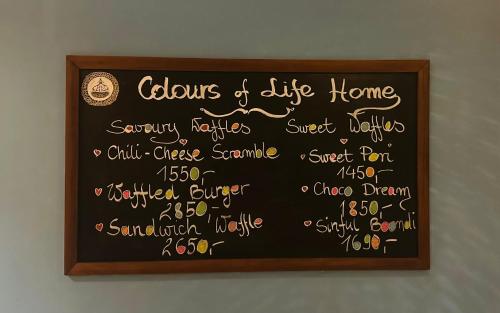 Colours of Life Home
Savoury Waffles
Chili-Cheese Scramble
1550,-
Waffled Burger
2850,-
Sandwich Waffle
2650,-
Sweet Waffles
Sweet Pori
1450,-
Choco Dream
1850,-
Sinful Boondi
1690,-